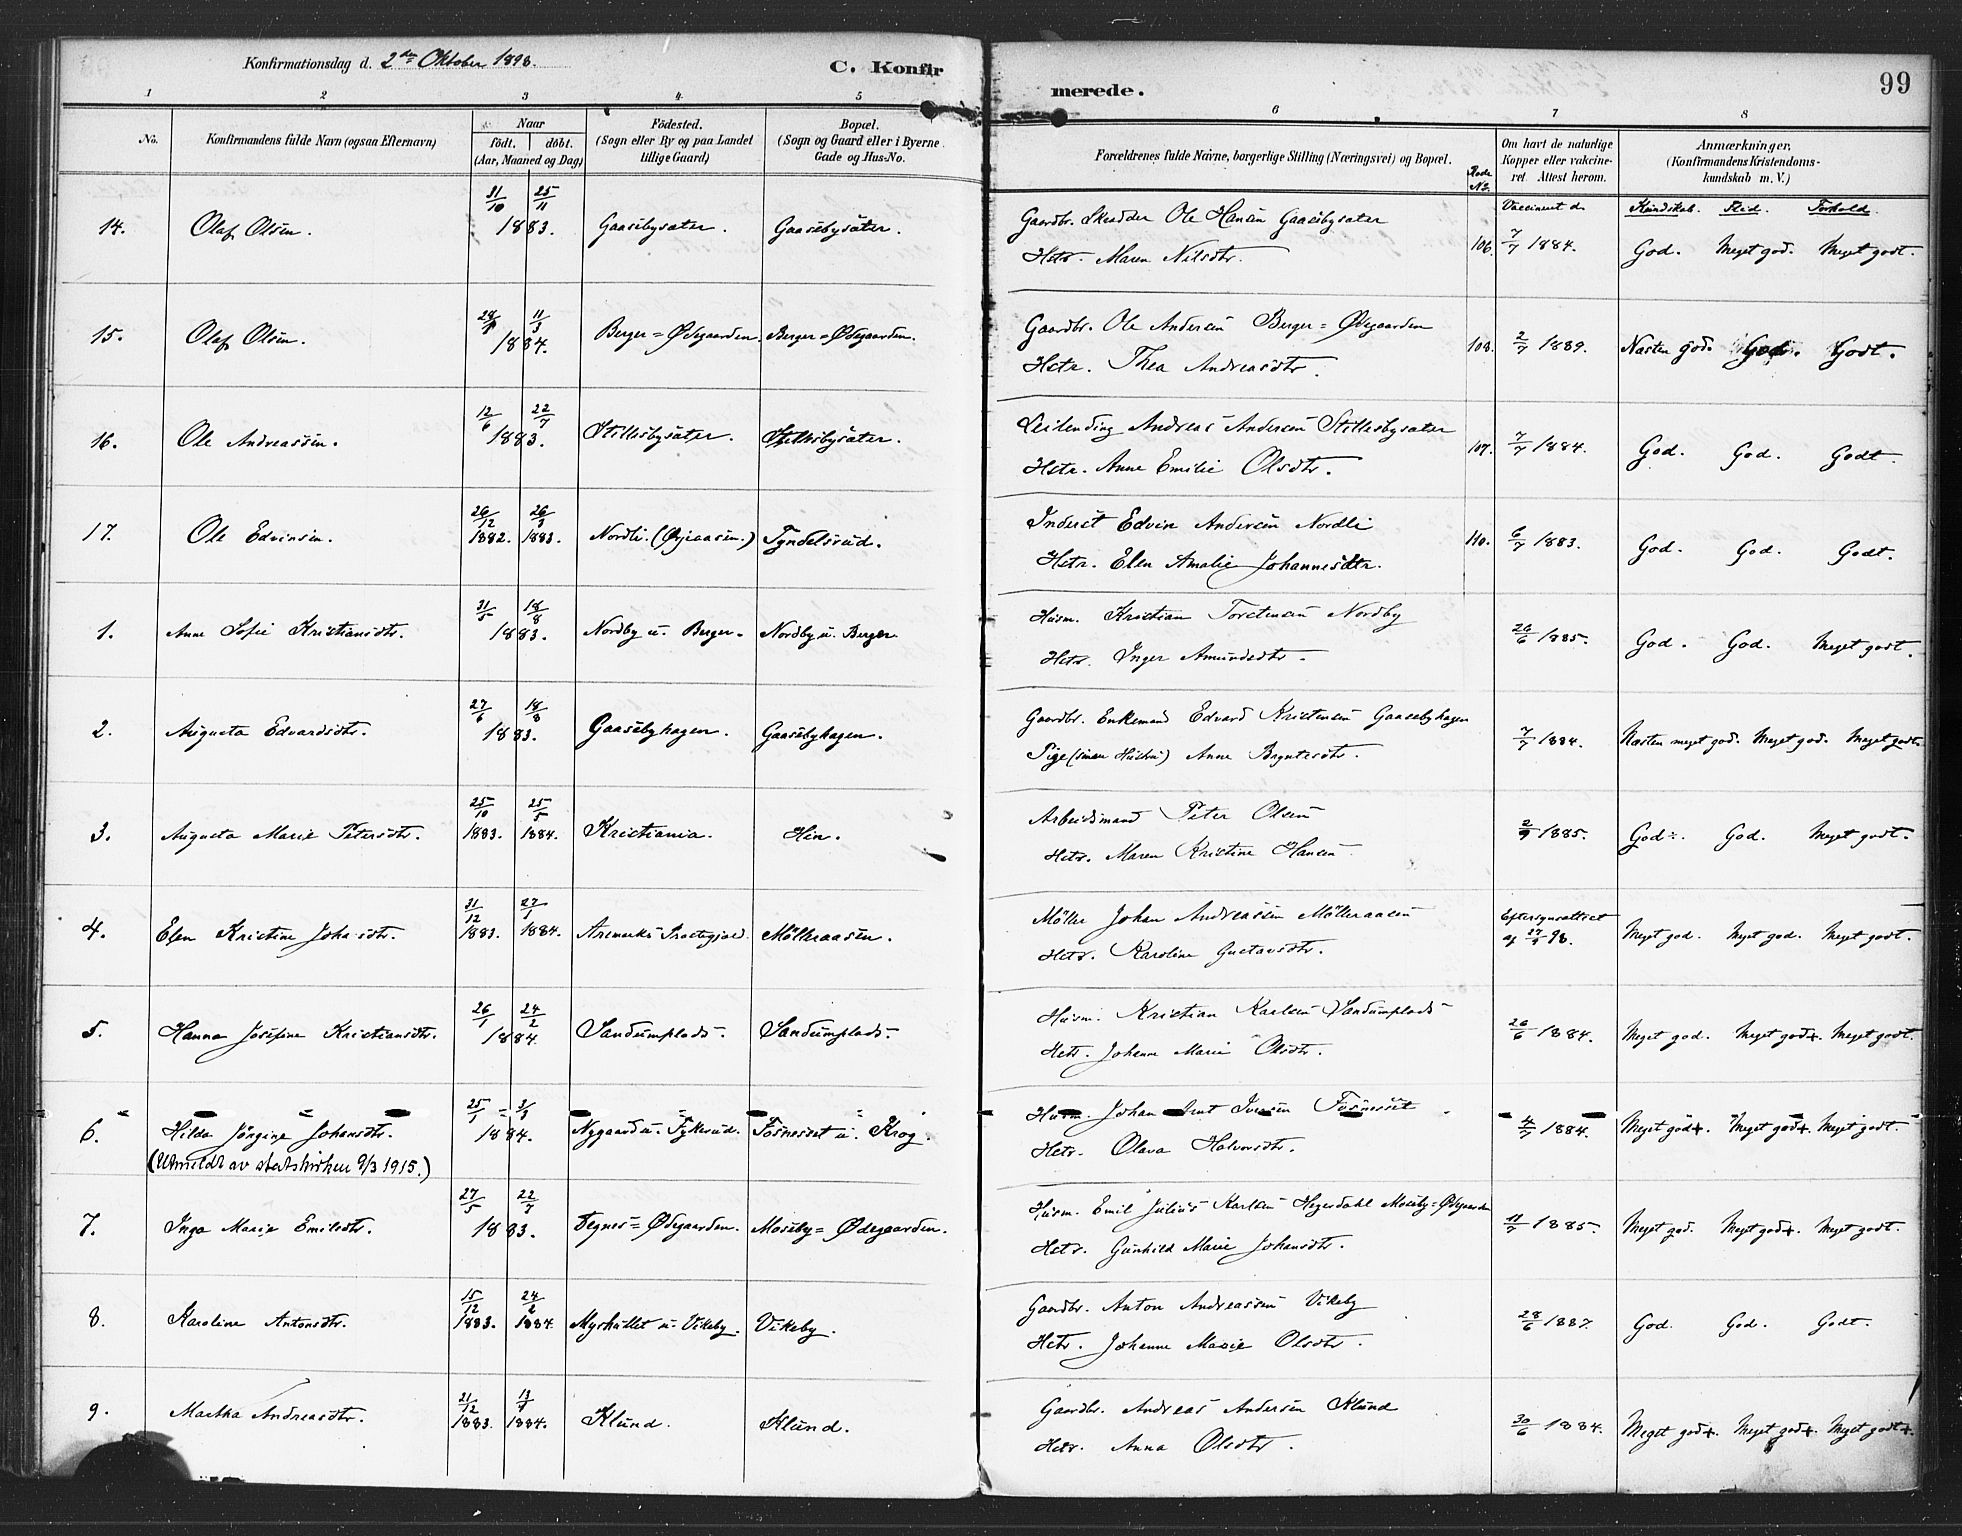 Konfirmationsdag d. 2den Oktober 1898.
C. Konfirmerede.
99
1 2 3 4 5 6 7 8
No.
Konfirmandens fulde Navn (ogsaa Efternavn)
Naar
födt. döbt.
(Aar, Maaned og Dag)
Födested.
(Sogn eller By og paa Landet
tillige Gaard)
Bopæl.
(Sogn og Gaard eller i Byerne
Gade og Hus-No.
Forældrenes fulde Navne, borgerlige Stilling (Næringsvei) og Bopæl.
Rode
No.
Om havt de naturlige
Kopper eller vakcine-
ret. Attest herom.
Anmærkninger,
(Konfirmandens Kristendoms-
kundskab m. V.)
Vaccineret d. Kundskab. Flid. Forhold.
14. Olaf Olsen. 31/10 25/11 1883. Gaasebysæter. Gaasebysæter. Gaardbr. Skrædder Ole Hansen Gaasebysæter
Hstr. Maren Nilsdtr. 106. 7/7 1884. God. Meget god. Meget godt.
15. Olaf Olsen. 11/3 1884. Berger=Ødegaarden. Berger=Ødegaarden. Gaardbr. Ole Andersen Berger=Ødegaarden
Hstr. Thea Andreasdtr. 108. 2/7 1889. Næsten god. God. Godt.
16. Ole Andreassen. 12/6 22/7 1883. Stillesbysæter. Stillesbysæter. Leilending Andreas Andersen Stillesbysæter
Hstr. Anne Emilie Olsdtr. 107. 7/7 1884. God. God. Godt.
17. Ole Edvinsen. 26/12 1882. 26/3 1883. Nordli. Tyndelsrud. Inderst Edvin Andersen Nordli
Hstr. Elen Amalie Johannesdtr. 110. 6/7 1883. God. God. Godt.
1. Anne Sofie Kristiansdtr. 31/5 18/8 1883. Nordby u. Berger. Nordby u. Berger Husm. Kristian Torstensen Nordby
Hstr. Inger Amundsdtr. 26/6 1885. God. God. Meget godt.
2. Augusta Edvardsdtr. 27/6 18/8 1883. Gaasebyhagen. Gaasebyhagen. Gaardbr. Enkemand Edvard Kristensen Gaasebyhagen
Pige (senere Hustru) Anne Bryntesdtr. 7/7 1884. Næsten meget god. Meget god. Meget godt.
3. Augusta Marie Petersdtr. 25/10 1883. 25/5 1884. Kristiania. Hin. Arbeidsmand Peter Olsen
Hstr. Maren Kristine Hansen 2/9 1885. God÷. God. Meget godt.
4. Elen Kristine Johansdtr. 31/12 1883. 27/1 1884. Aremarks Præstegjæld. Mölleraasen. Möller Johan Andreassen Mölleraasen
Hstr. Karoline Gustavsdtr. Eftersynsattest
af 27/9 98. Meget god. Meget god. Meget godt.
5. Hanna Josefine Kristiansdtr. 26/1 24/2 1884. Sandumplads. Sandumplads. Husm. Kristian Karlsen Sandumplads
Hstr. Johanne Marie Olsdtr. 26/6 1884. Meget god. Meget god+. Meget godt.
6. Hilda Jörgine Johansdtr. 25/1 3/3 1884. Nygaard u. Fykerud. Fosnesset u. Krog. Husm. Johan Arnt Iversen Fosnesset
(Utmeldt av statskirken 9/3 1915.) Hstr. Olava Halvorsdtr. 4/7 1884. Meget god+. Meget god+. Meget godt.
7. Inga Marie Emilsdtr. 27/5 22/7 1883. Tegnes=Ødegaarden. Moseby=Ødegaarden. Husm. Emil Julius Karlsen Hegerdahl Moseby=Ødegaarden
Hstr. Gunhild Marie Johansdtr. 11/7 1885. Meget god. Meget god+. Meget godt.
8. Karoline Antonsdtr. 15/12 1883. 24/2 1884. Myrhullet u. Vikeby. Vikeby. Gaardbr. Anton Andreassen Vikeby
Hstr. Johanne Marie Olsdtr. 28/6 1887. God. God. Godt.
9. Martha Andreasdtr. 21/12 1883. 1884. Klund. Klund. Gaardbr. Andreas Andersen Klund
Hstr. Anna Olsdtr. 30/6 1884. Meget god+. Meget god+. Meget godt+.